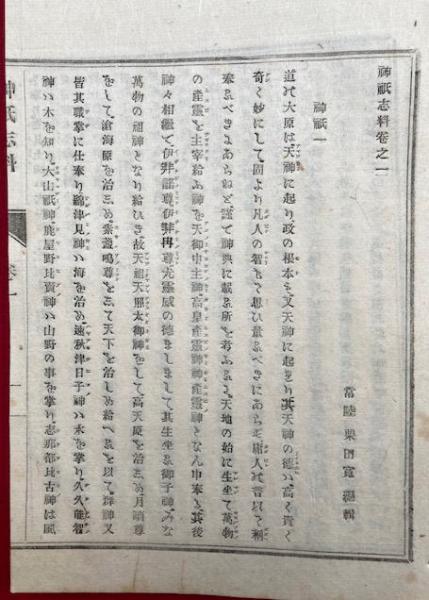 神祇志料卷之一
常陸 栗田寬 編輯
神祇一
道の大原は天神に起り政の根本も又天神に起きり其天神の德は高く貴く
奇く妙にして固より凡人の智もて思ひ量るべきにあらず庸人の言以て稱
奉るべきにあらねど謹て神典に載る所を考ふるに天地の始に生坐て萬物
の產靈を主宰給ふ神を天御中主神高皇產靈神神產靈神となん申奉る其後
神々相繼て伊弉諾尊伊弉冉尊尤靈威の德ましまして其生坐る御子神みな
萬物の祖神となり給ひき故天祖天照大御神をして高天原を治しめ月讀尊
をして滄海原を治しめ素盞嗚尊をして天下を治しめ給へるを以て群神又
皆其職掌に仕奉り綿津見神ハ海を治め速秋津日子神ハ水を掌り久久能智
神ハ木を知り大山祇神鹿屋野比賣神ハ山野の事を掌り志那都比古神は風
神祇志料
卷一
一